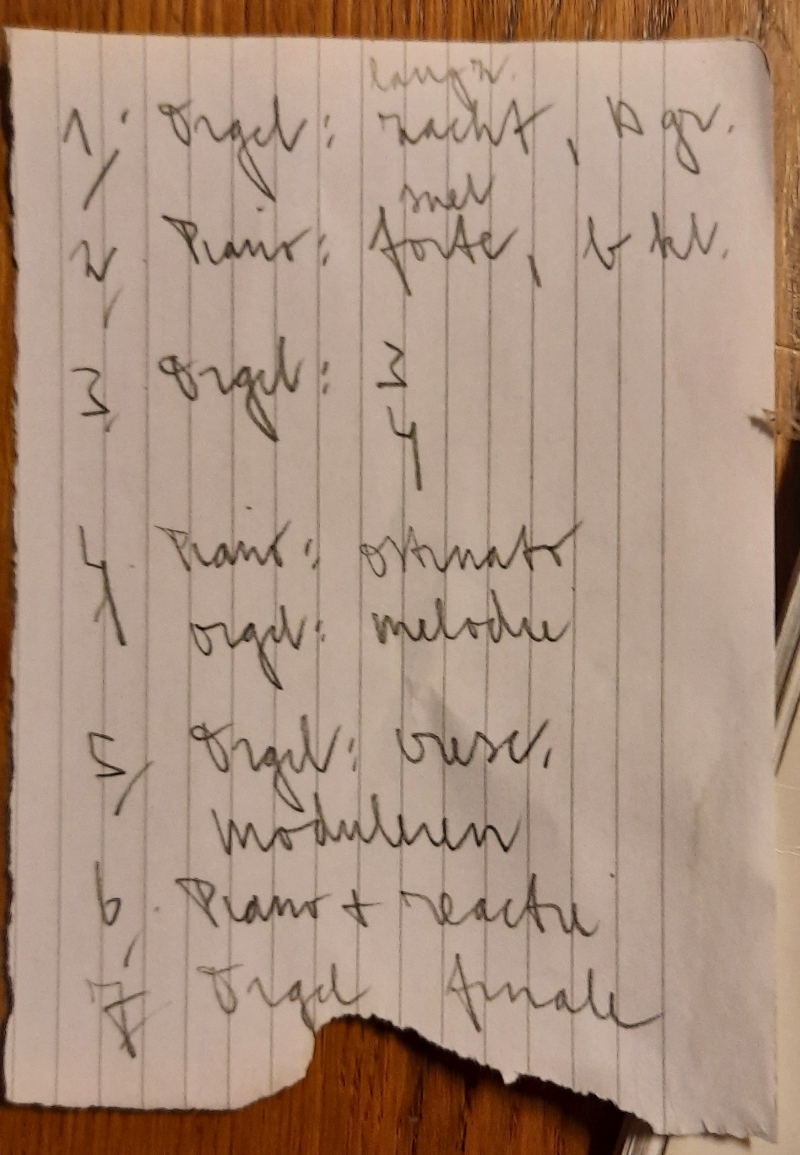 langz.
1, Orgel: zacht, D gr.
snel
2, Piano: forte, b kl.
3, Orgel: 3
4
4, Piano: ostinato
orgel: melodie
5, Orgel: cresc,
moduleren
6, Piano + reactie
7, Orgel finale